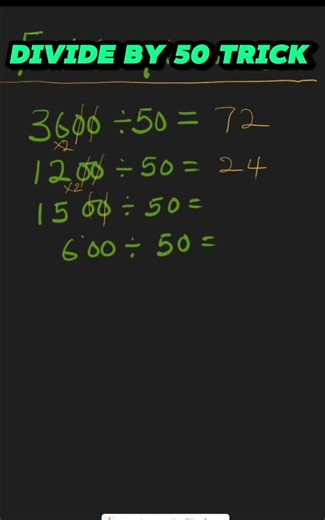 DIVIDE BY 50 TRICK
3600 ÷ 50 = 72
x2
1200 ÷ 50 = 24
x2
1500 ÷ 50 =
600 ÷ 50 =